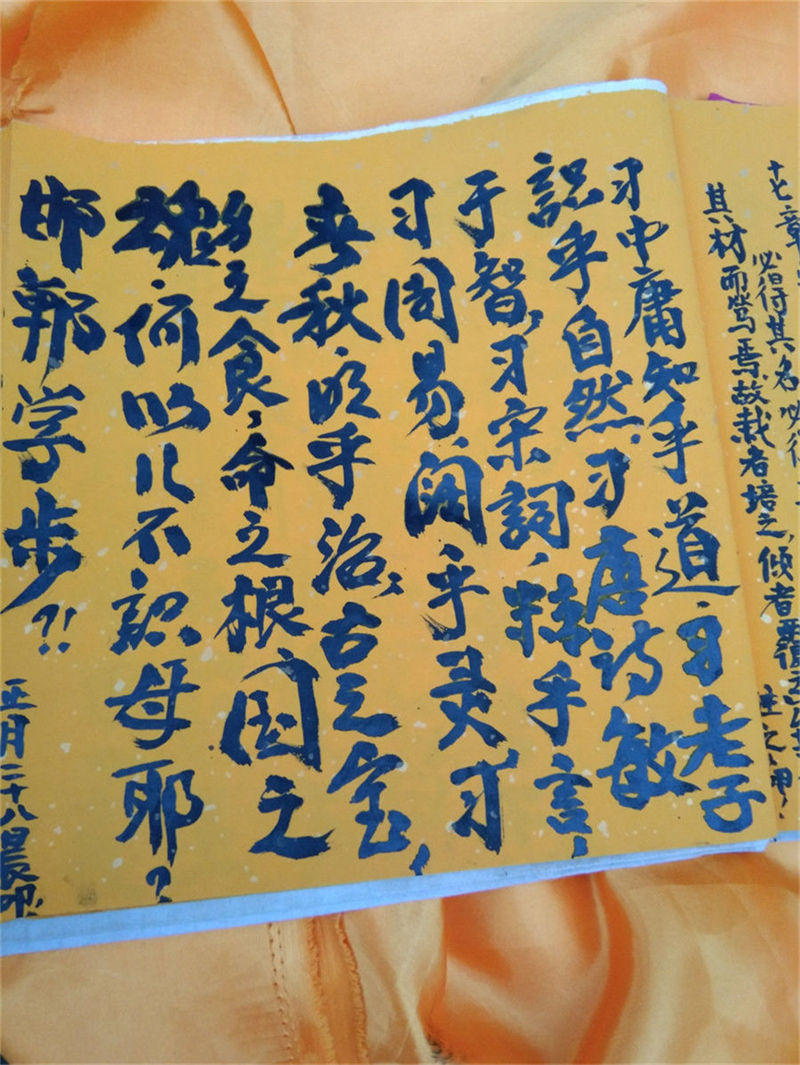 十七章
必得其名 必得
其材而笃焉,故栽者培之,倾者覆之
习中庸知乎道,习老子
识乎自然,习唐诗敏
于智,习宋词,炼乎言,
习周易,乎灵 习
春秋,明乎治,古之宝,
之食,命之根,国之
魂,何以儿不認母耶?
邯郸学步?!
正月二十八日晨卯